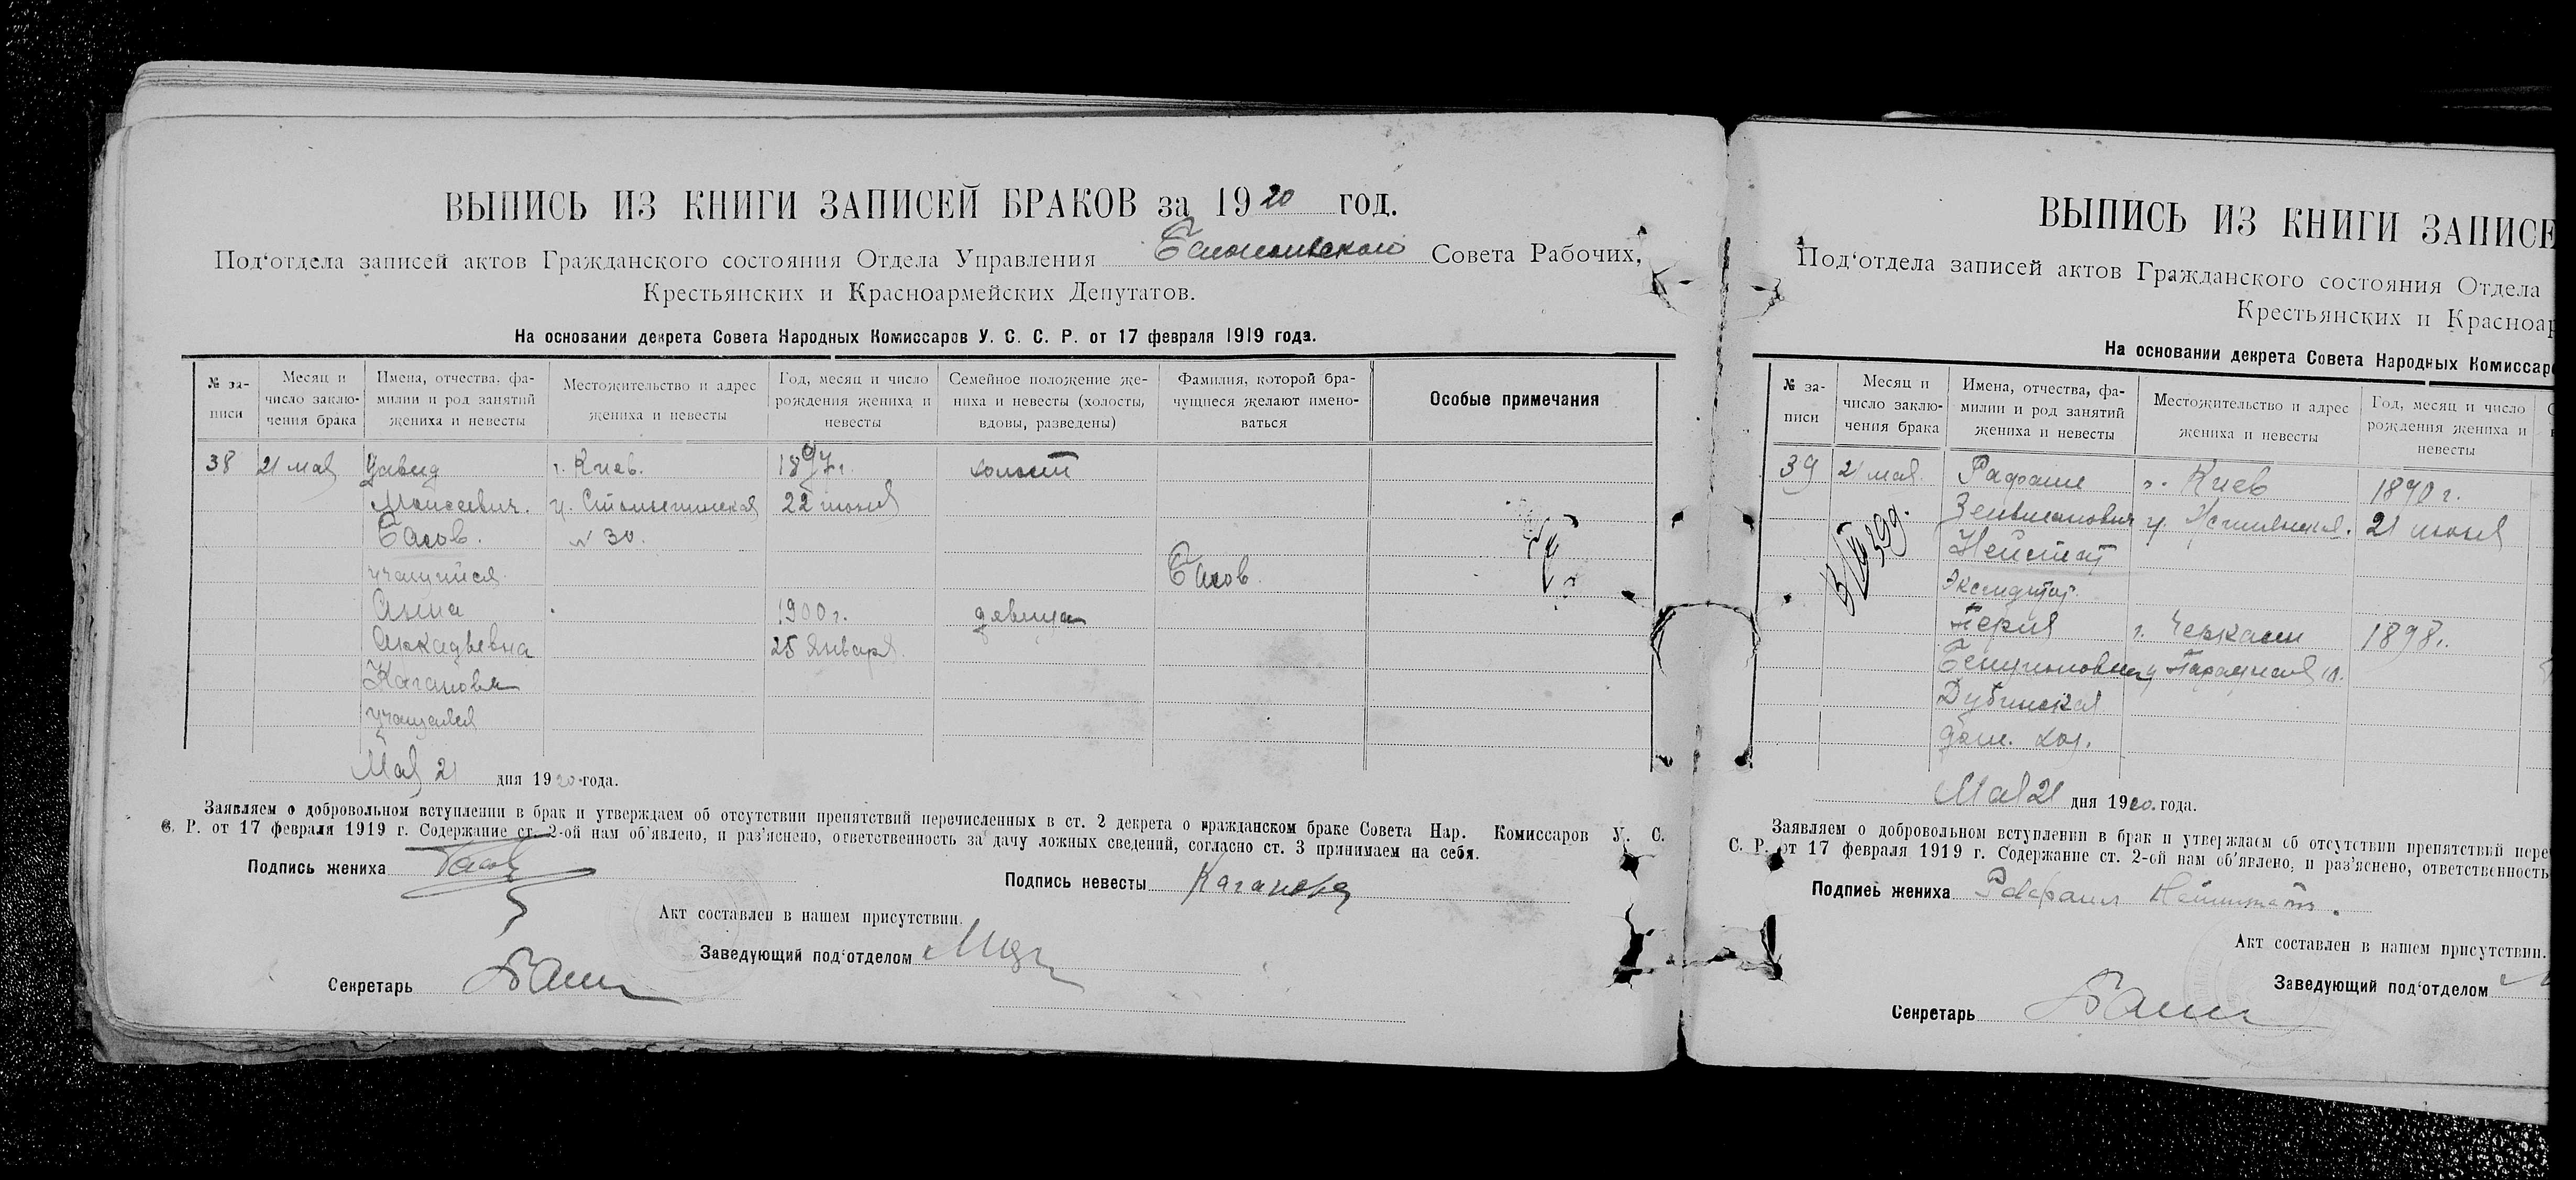 ВЫПИСЬ ИЗ КНИГИ ЗАПИСЕЙ БРАКОВ за 1920 год.
Под‘отдела записей актов Гражданского состояния Отдела Управления Совета Рабочих,
Крестьянских и Красноармейских Депутатов.
На основании декрета Совета Народных Комиссаров У. С. С. Р. от 17 февраля 1919 года.
№ за-
писи
Месяц и
число заклю-
чения брака
Имена, отчества, фа-
милии и род занятий
жениха и невесты
Местожительство и адрес
жениха и невесты
Год, месяц и число
рождения жениха и
невесты
Семейное положение же-
ниха и невесты (холосты,
вдовы, разведены)
Фамилия, которой бра-
чущиеся желают имено-
ваться
Особые примечания
38 21 мая Давид г. Киев. 1897г. холост
Моисеевич. у. Столыпинская 22 июня
Басов. № 30.
учащийся. Басов.
Анна 1900г. девица
Аркадьевна 25 января.
Каганова
учащаяся
Мая 21 дня 1920 года.
Заявляем о добровольном вступлении в брак и утверждаем об отсутствии препятствий перечисленных в ст. 2 декрета о гражданском браке Совета Нар. Комиссаров У. С.
С. Р. от 17 февраля 1919 г. Содержание ст. 2-ой нам об‘явлено, и раз‘яснено, ответственность за дачу ложных сведений, согласно ст. 3 принимаем на себя.
Подпись жениха Басов
Подпись невесты Каганова
Акт составлен в нашем присутствии.
Заведующий под‘отделом
Секретарь
ВЫПИСЬ ИЗ КНИГИ ЗАПИСЕ
Под‘отдела записей актов Гражданского состояния Отдела
Крестьянских и Красноар
На основании декрета Совета Народных Комиссар
№ за-
писи
Месяц и
число заклю-
чения брака
Имена, отчества, фа-
милии и род занятий
жениха и невесты
Местожительство и адрес
жениха и невесты
Год, месяц и число
рождения жениха и
невесты
39 21 мая. Рафаил г. Киев 1890 г.
21 июня
Нейштат
Перля г. Черкассы 1898г.
Бенционовна
Дубинская
дом. хоз.
Мая 21 дня 1920. года.
Заявляем о добровольном вступлении в брак и утверждаем об отсутствии препятствий пере
С. Р. от 17 февраля 1919 г. Содержание ст. 2-ой нам об‘явлено, и раз‘яснено, ответственность
Подпись жениха Рафаил Нейштат.
Акт составлен в нашем присутствии.
Заведующий под‘отделом
Секретарь